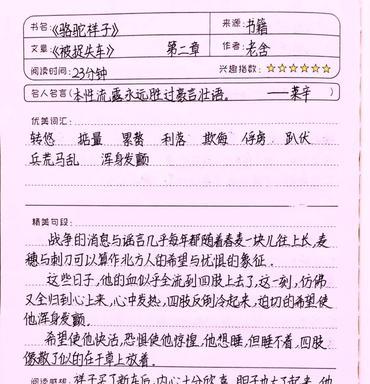 书名:《骆驼祥子》 来源:书籍
文章:《被捉失车》 第二章 作者:老舍
阅读时间:23分钟 兴趣指数:★★★★★★
名人名言(本性流露永远胜过豪言壮语。 ——莱辛)
优美词汇:
转悠 掂量 累赘 利落 欺侮 俘虏 趴伏
兵荒马乱 浑身发颤
精美句段:
战争的消息与谣言几乎每年都随着春麦一块儿往上长,麦
穗与刺刀可以算作北方人的希望与忧惧的象征。
这些日子,他的血似乎全流到四肢上去了,这一刻,仿佛
又全归到心上来,心中发热,四肢反倒冷起来,迫切的希望使
他浑身发颤。
希望使他快活,恐惧使他惊惶,他想睡,但睡不着,四肢
像散了似的在干草上放着。
阅读感想:祥子买了新车后,内心十分欣喜,胆子也大了起来,他